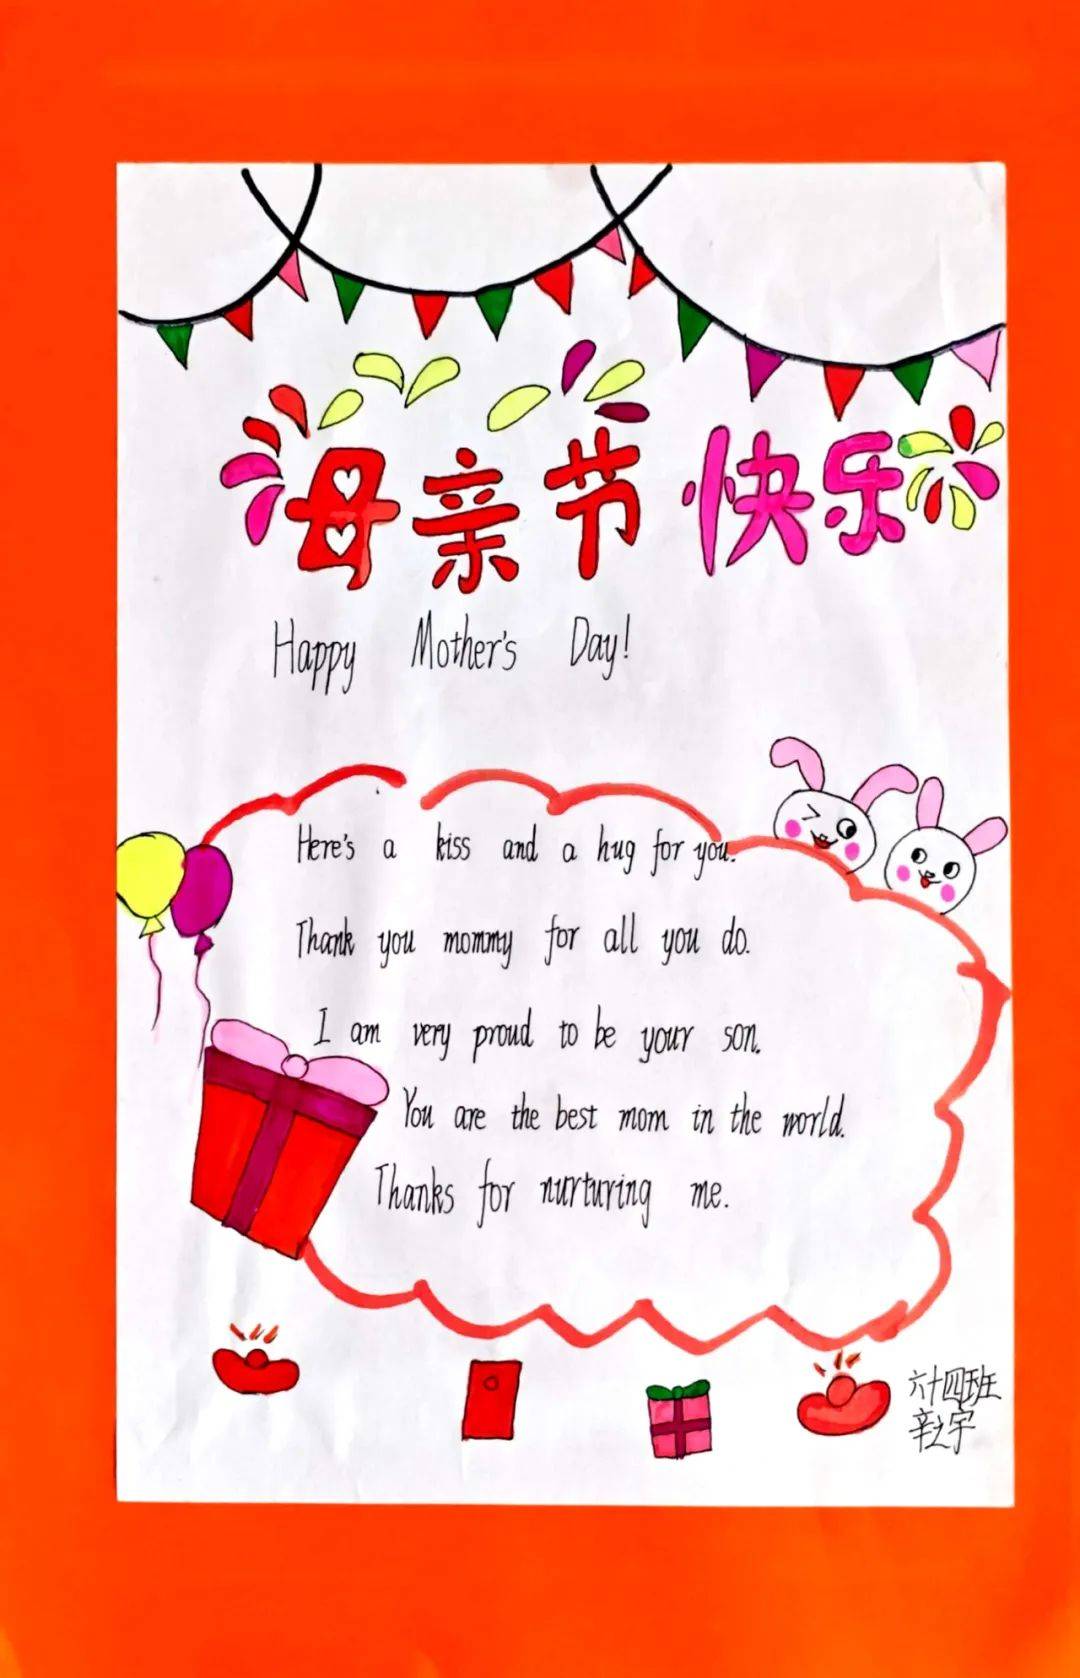 母亲节快乐
Happy Mother's Day!
Here's a kiss and a hug for you.
Thank you mommy for all you do.
I am very proud to be your son.
You are the best mom in the world.
Thanks for nurturing me.
六十四班
辛之宇